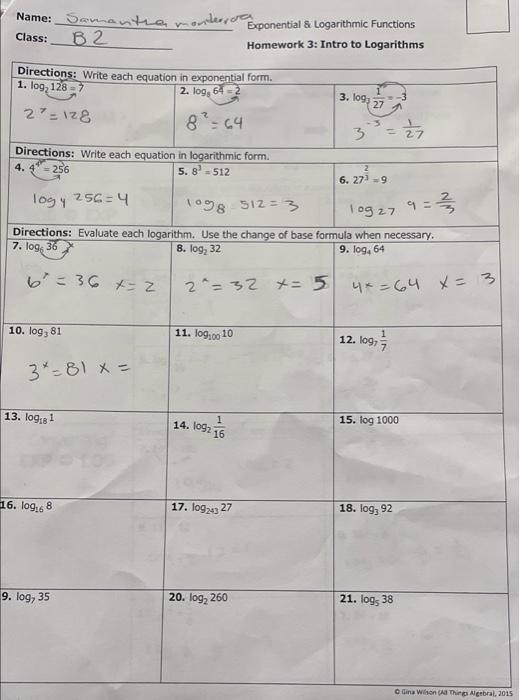 Name: Samantha
Exponential & Logarithmic Functions
Class: B2
Homework 3: Intro to Logarithms
Directions: Write each equation in exponential form.
1. log₂ 128 = 7
2. log₈ 64 = 2
3. log₃ 1/27 = -3
2⁷ = 128
8² = 64
3⁻³ = 1/27
Directions: Write each equation in logarithmic form.
4. 4⁴ = 256
5. 8³ = 512
6. 27^(2/3) = 9
log₄ 256 = 4
log₈ 512 = 3
log 27 9 = 2/3
Directions: Evaluate each logarithm. Use the change of base formula when necessary.
7. log₆ 36 x
8. log₂ 32
9. log₄ 64
6ˣ = 36 x = 2
2ˣ = 32 x = 5
4ˣ = 64 x = 3
10. log₃ 81
11. log₁₀₀ 10
12. log₇ 1/7
3ˣ = 81 x =
13. log₁₈ 1
14. log₂ 1/16
15. log 1000
16. log₁₆ 8
17. log₂₄₃ 27
18. log₃ 92
9. log₇ 35
20. log₂ 260
21. log₅ 38
© Gina Wilson (All Things Algebra), 2015